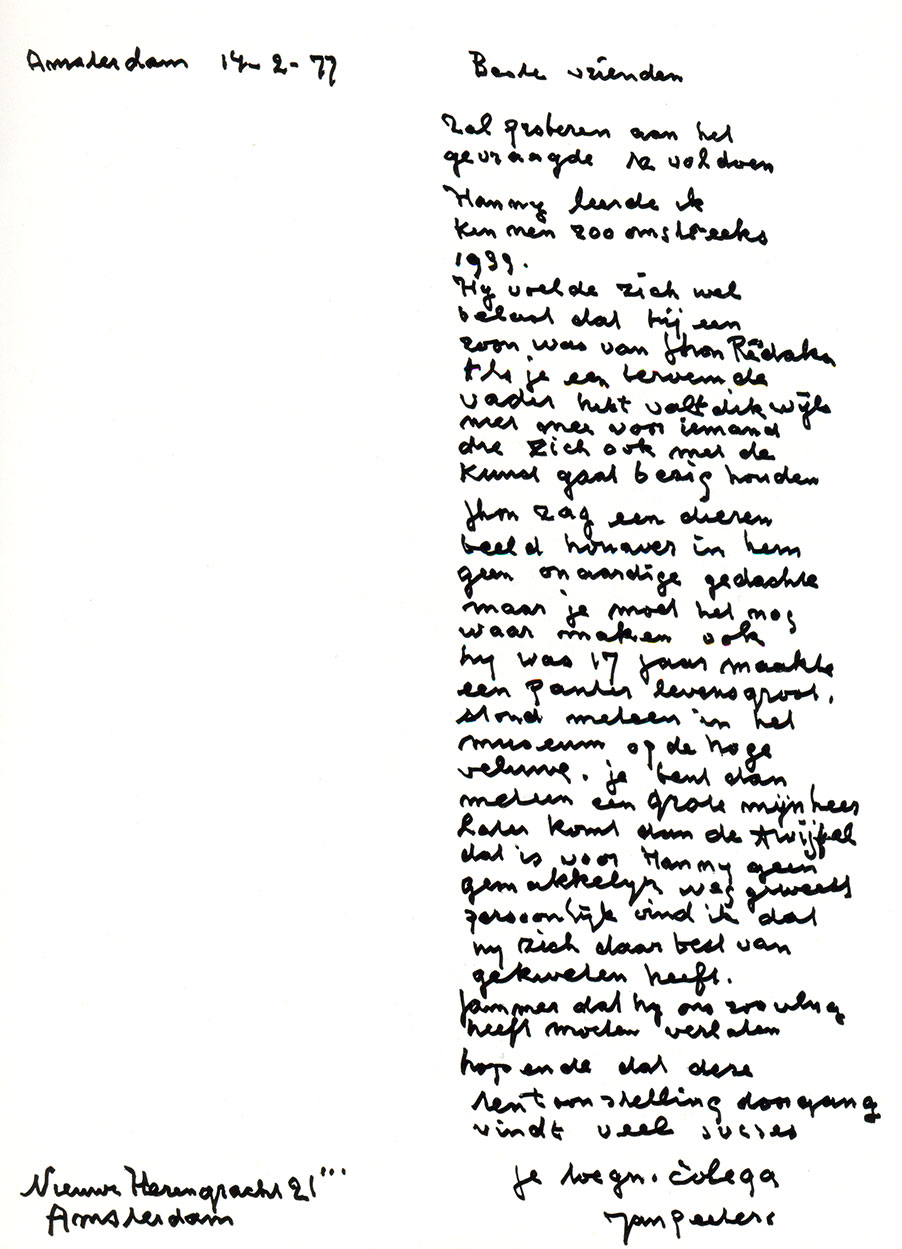 Amsterdam 14-2-77
Beste vrienden
Zal proberen aan het
gevraagde te voldoen
Hanny leerde ik
kennen zoo omstreeks
1939.
Hy voelde zich wel
belast dat hij een
zoon was van Jhon Rädeker
Als je een beroemde
vader hebt valt dikwijls
niet mee voor iemand
die zich ook met de
kunst gaat bezig houden
Jhon zag een dieren
beeld houwer in hem
geen onaardige gedachte
maar je moet het nog
waar maken ook
hy was 17 jaar maakte
een panter levensgroot.
stond meteen in het
museum op de hoge
veluwe. je bent dan
meteen een grote mijnheer
Later komt dan de twijfel
dat is voor Hanny geen
gemakkelyk weg geweest
persoonlijk vind ik dat
hy zich daar best van
gekweten heeft.
Jammer dat hy ons zoo vlug
heeft moeten verlaten
hopende dat deze
tentoonstelling doorgang
vindt veel succes
je toegn. colega
Jan Peeters
Nieuwe Herengracht 21'''
Amsterdam